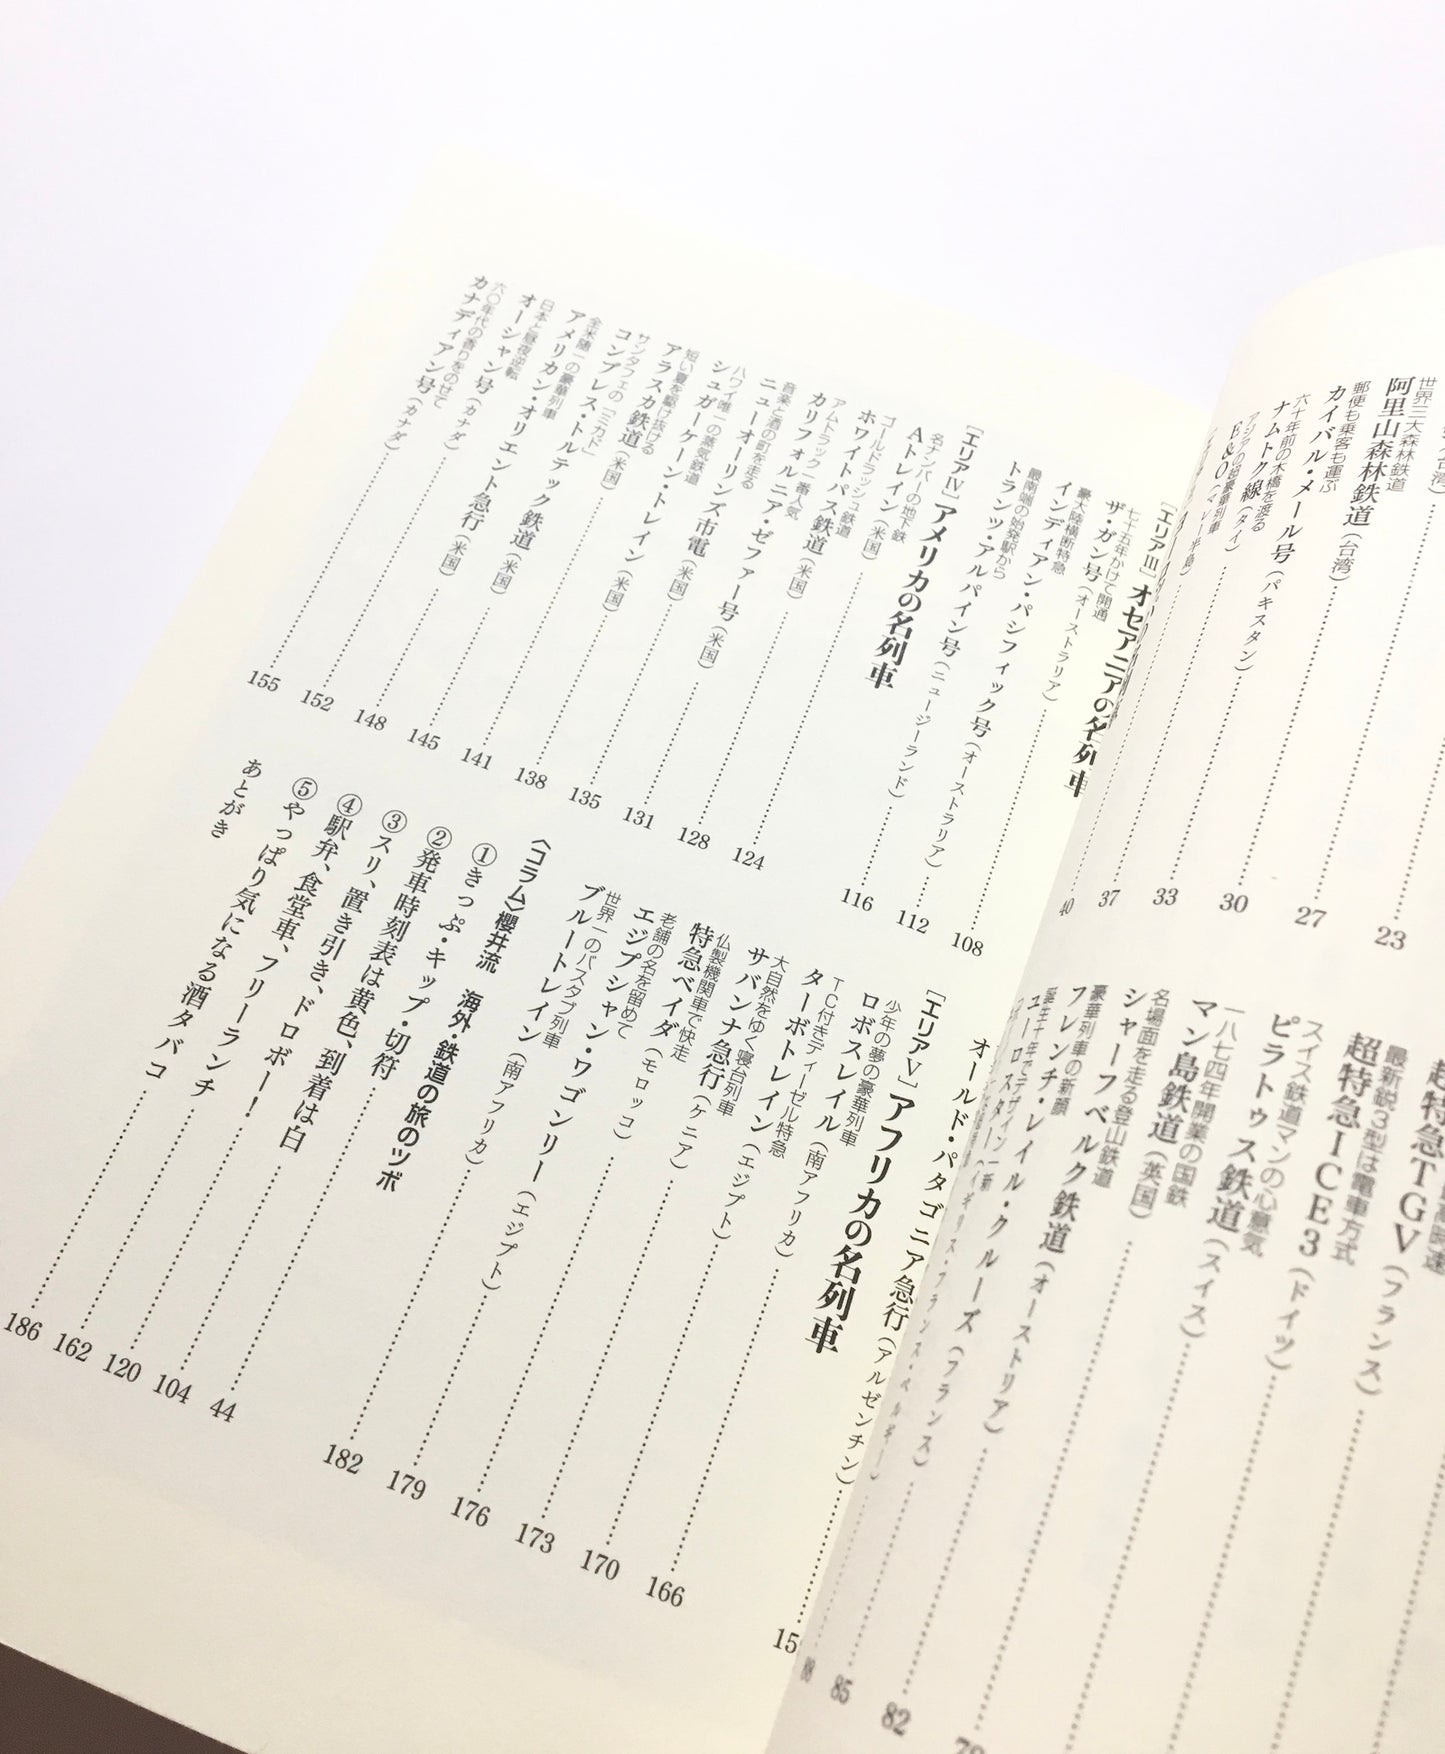 世界三大森林鉄道
阿里山森林鉄道（台湾）
23
郵便も乗客も運ぶ
カイバル・メール号（パキスタン）
27
六十年前の木橋を渡る
ナムトク線（タイ）
30
E&O（マレー半島）
33
37
40
超特急TGV（フランス）
最新鋭3型は電車方式
超特急ICE3（ドイツ）
スイス鉄道マンの心意気
ピラトゥス鉄道（スイス）
一八七四年開業の国鉄
マン島鉄道（英国）
名場面を走る登山鉄道
シャーフベルク鉄道（オーストリア）
豪華列車の新顔
フレンチ・レイル・クルーズ（フランス）
82
85
［エリアIII］オセアニアの名列車
七十五年かけて開通
ザ・ガン号（オーストラリア）
豪大陸横断特急
インディアン・パシフィック号（オーストラリア）
108
最南端の始発駅から
トランツ・アルパイン号（ニュージーランド）
112
［エリアIV］アメリカの名列車
名ナンバーの地下鉄
Aトレイン（米国）
116
ゴールドラッシュ鉄道
ホワイトパス鉄道（米国）
124
アムトラック一番人気
カリフォルニア・ゼファー号（米国）
128
音楽と酒の町を走る
ニューオーリンズ市電（米国）
131
ハワイ唯一の蒸気鉄道
シュガーケーン・トレイン（米国）
135
短い夏を駆け抜ける
アラスカ鉄道（米国）
138
サンタフェの「ミカド」
コンブレス・トルテック鉄道（米国）
141
全米随一の豪華列車
アメリカン・オリエント急行（米国）
145
日本と昼夜逆転
オーシャン号（カナダ）
148
六〇年代の香りをのせて
カナディアン号（カナダ）
152
155
オールド・パタゴニア急行（アルゼンチン）
［エリアV］アフリカの名列車
少年の夢の豪華列車
ロボスレイル（南アフリカ）
166
TC付きディーゼル特急
ターボトレイン（エジプト）
170
大自然をゆく寝台列車
サバンナ急行（ケニア）
173
仏製機関車で快走
特急ベイダ（モロッコ）
176
老舗の名を留めて
エジプシャン・ワゴンリー（エジプト）
179
世界一のパスタブ列車
ブルートレイン（南アフリカ）
182
〈コラム〉櫻井流　海外・鉄道の旅のツボ
①きっぷ・キップ・切符
44
②発車時刻表は黄色、到着は白
104
③スリ、置き引き、ドロボー！
120
④駅弁、食堂車、フリーランチ
162
⑤やっぱり気になる酒タバコ
186
あとがき